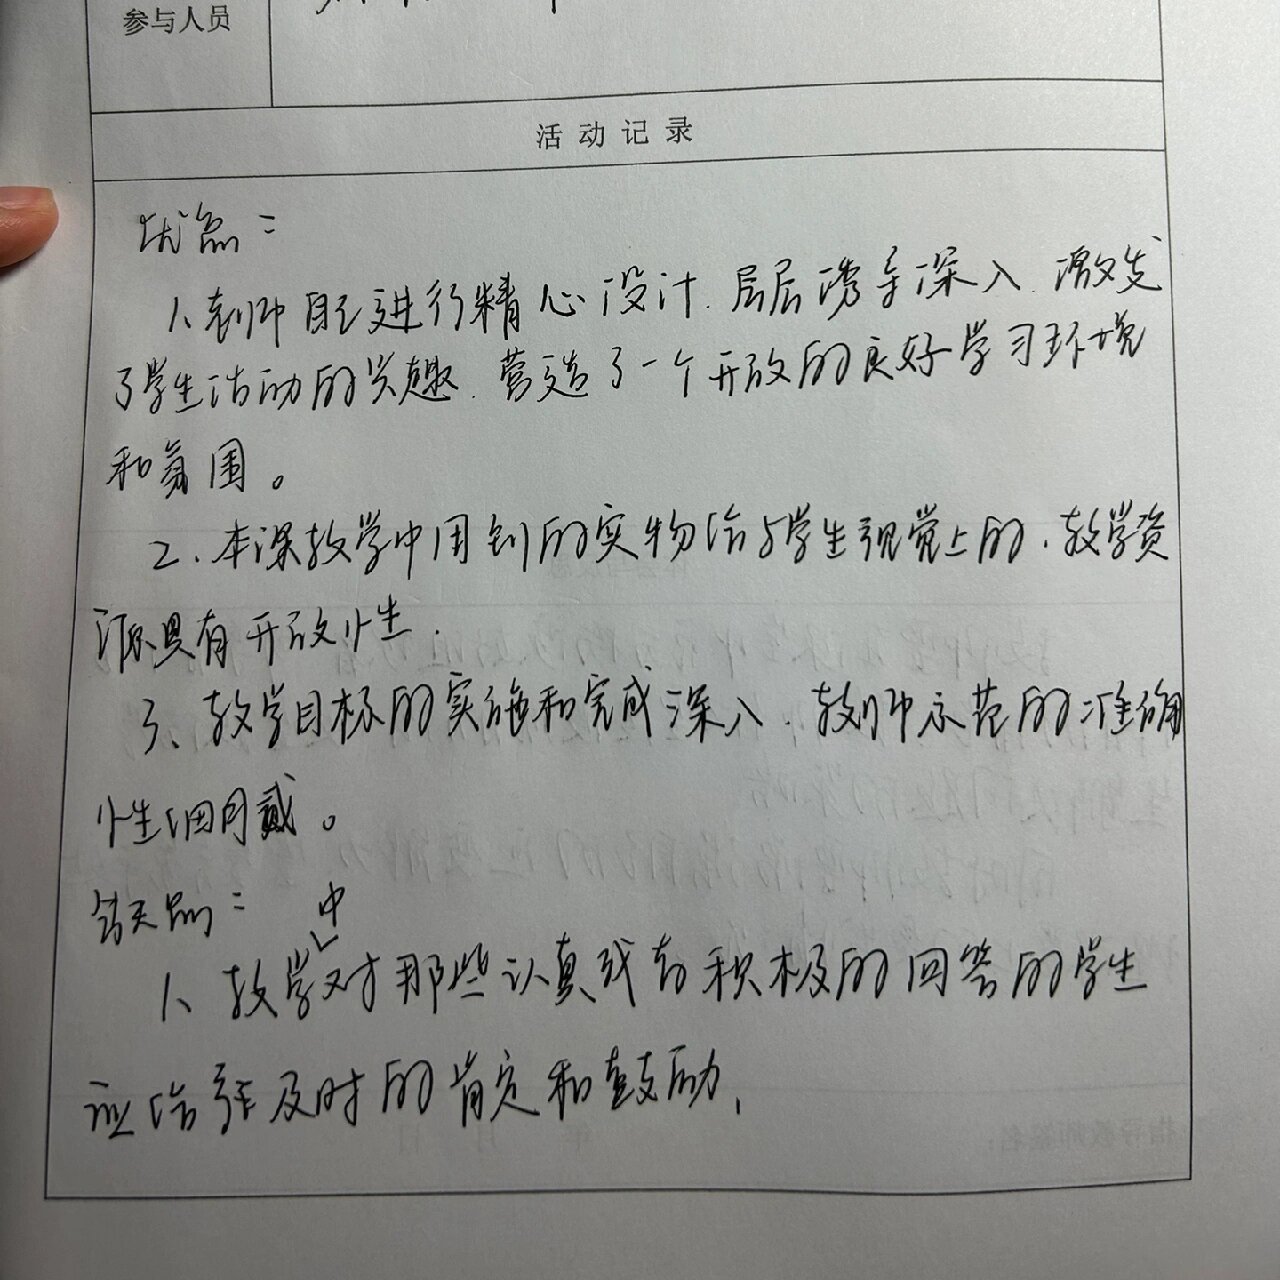 参与人员
活动记录
优点：
1、教师自己进行精心设计、层层诱导深入、激发
了学生活动的兴趣、营造了一个开放的良好学习环境
和氛围。
2、本课教学中用到的实物给与学生视觉上的、教学资
源具有开放性、
3、教学目标的实施和完成深入、教师示范的准确
性细
缺点：
1、教学中对那些认真或者积极的回答的学生
应给予及时的肯定和鼓励、